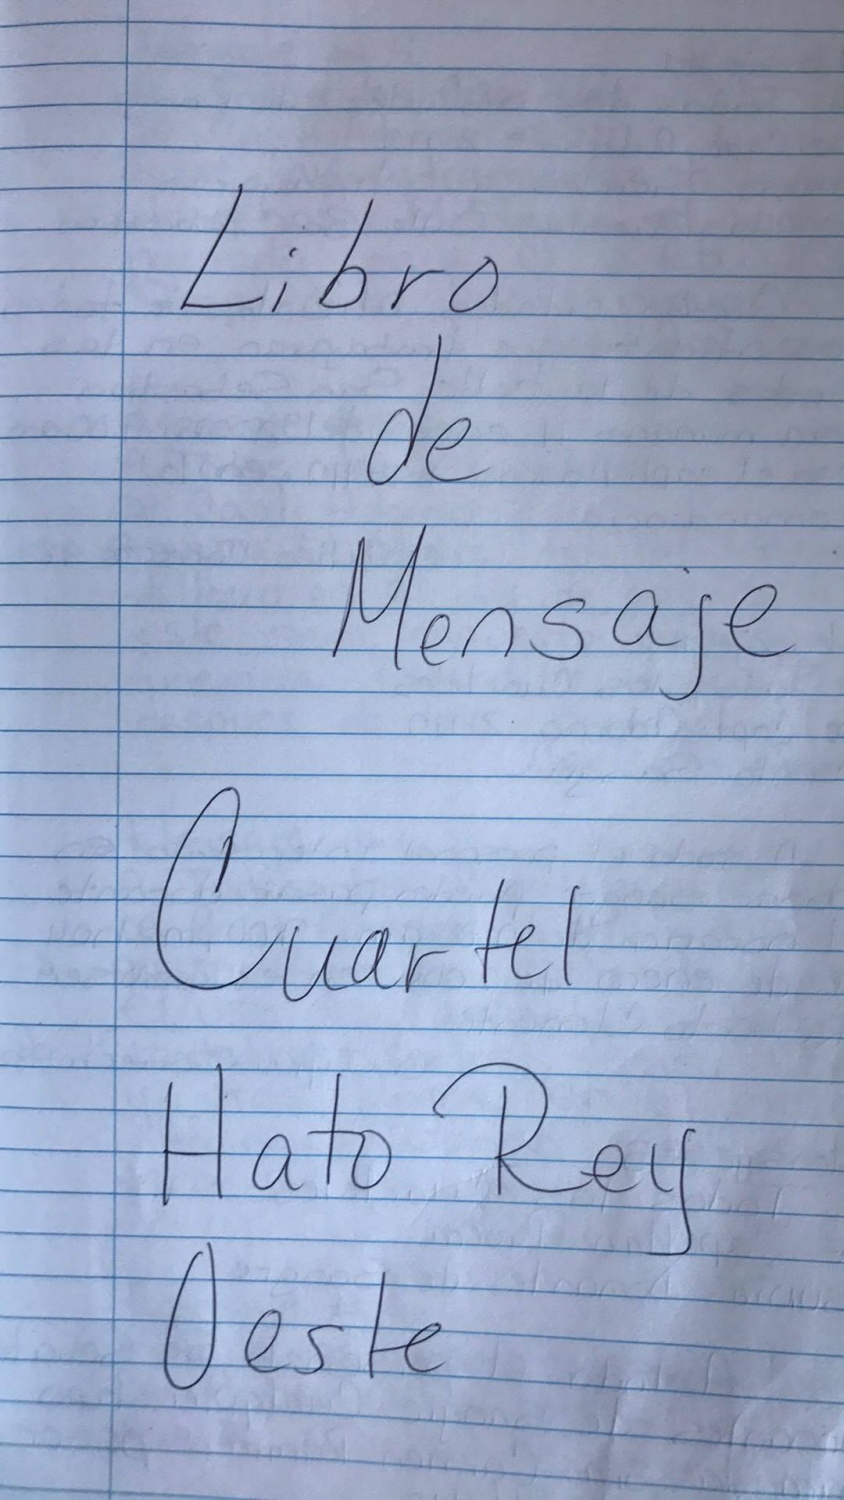 Libro
de
Mensaje
Cuartel
Hato Rey
Oeste